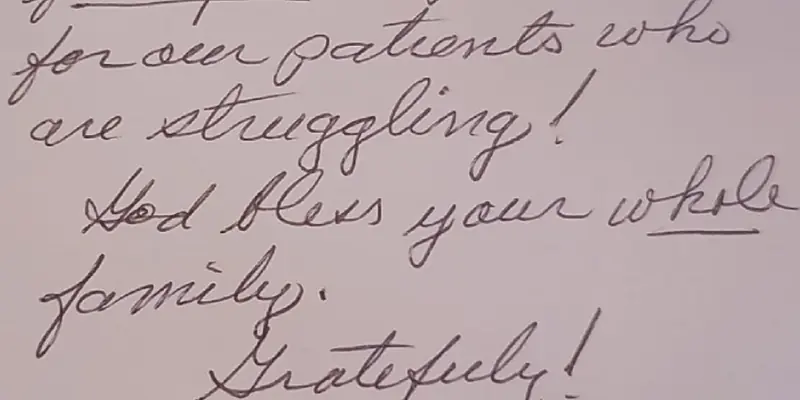 for our patients who
are struggling!
God bless your whole
family.
Gratefully!